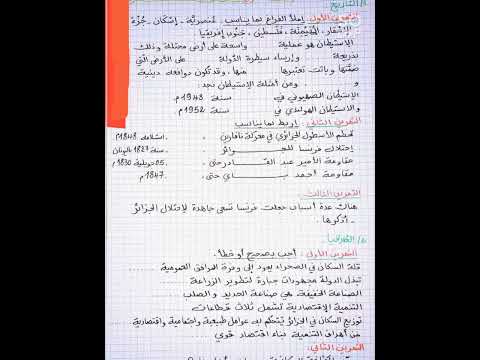 I/ التاريخ
التمرين الأول: إملأ الفراغ بما يناسب. عنصريّة - إسكان - جُزْءً
الإستقرار - المهيمنة - فلسطين - جنوب إفريقيا
الاستيطان هو عملية واسعة على أرض محتلة وذلك
بتدريجة وإرساء سيطرة الدولة على الأرض التي
ضمّتها وباتت تعتبرها منها، وقد تكون دوافعه دينية
و ومن أمثلة الاستيطان نجد:
الإستيطان الصهيوني في سنة 1948م
والاستيطان الهولندي في سنة 1952م
التمرين الثاني: إربط بما يناسب
تحطم الأسطول الجزائري في معركة نافارين. استسلامه 1848م
إحتلال فرنسا للجــزائر. سنة 1827 باليونان
مقاومة الأمير عبد القـادر حتى. 05 جويلية 1830م
مقاومة أحمد بـاي حتى. 1847م
التمرين الثالث:
هناك عدة أسباب جعلت فرنسا تسعى جاهدة لإحتلال الجزائر
- أذكرها.
II/ الجغرافيا
التمرين الأول: أجب بصحيح أو خطأ.
قلة السكان في الصحراء يعود إلى وفرة المرافق العمومية
تبذل الدولة مجهودات جبارة لتطوير الزراعة
الصناعة الخفيفة هي صناعة الحديد و الصلب
التنمية الاقتصادية تشمل ثلاث قطاعات
توزيع السكان في الجزائر يتحكم فيه عوامل طبيعية واجتماعية واقتصادية
من أهداف التنمية بناء اقتصاد قوي
التمرين الثاني: